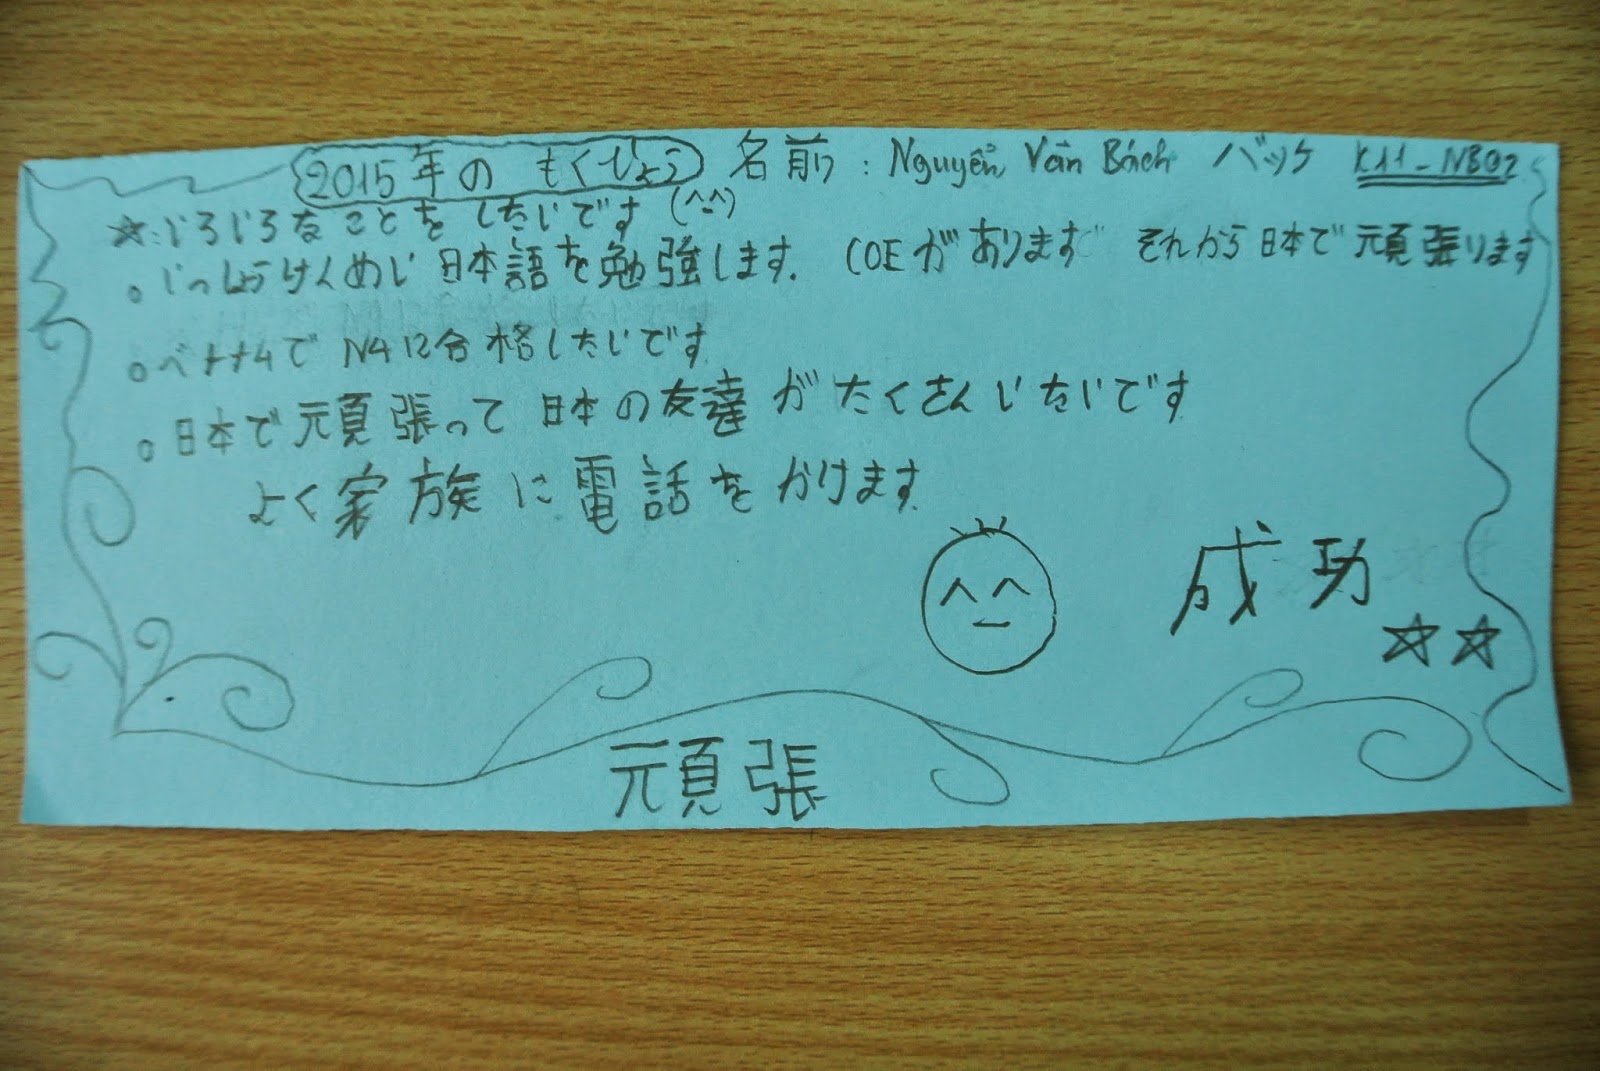 2015年の もくひょう 名前 : Nguyễn Văn Bách バック K11-NB02
☆:いろいろなことをしたいです (^-^)
○いっしょうけんめい日本語を勉強します. COEがあります それから日本で頑張ります
○ベトナムで N4に合格したいです
○日本で頑張って日本の友達がたくさんいたいです
よく家族に電話をかけます
成功
☆☆
頑張